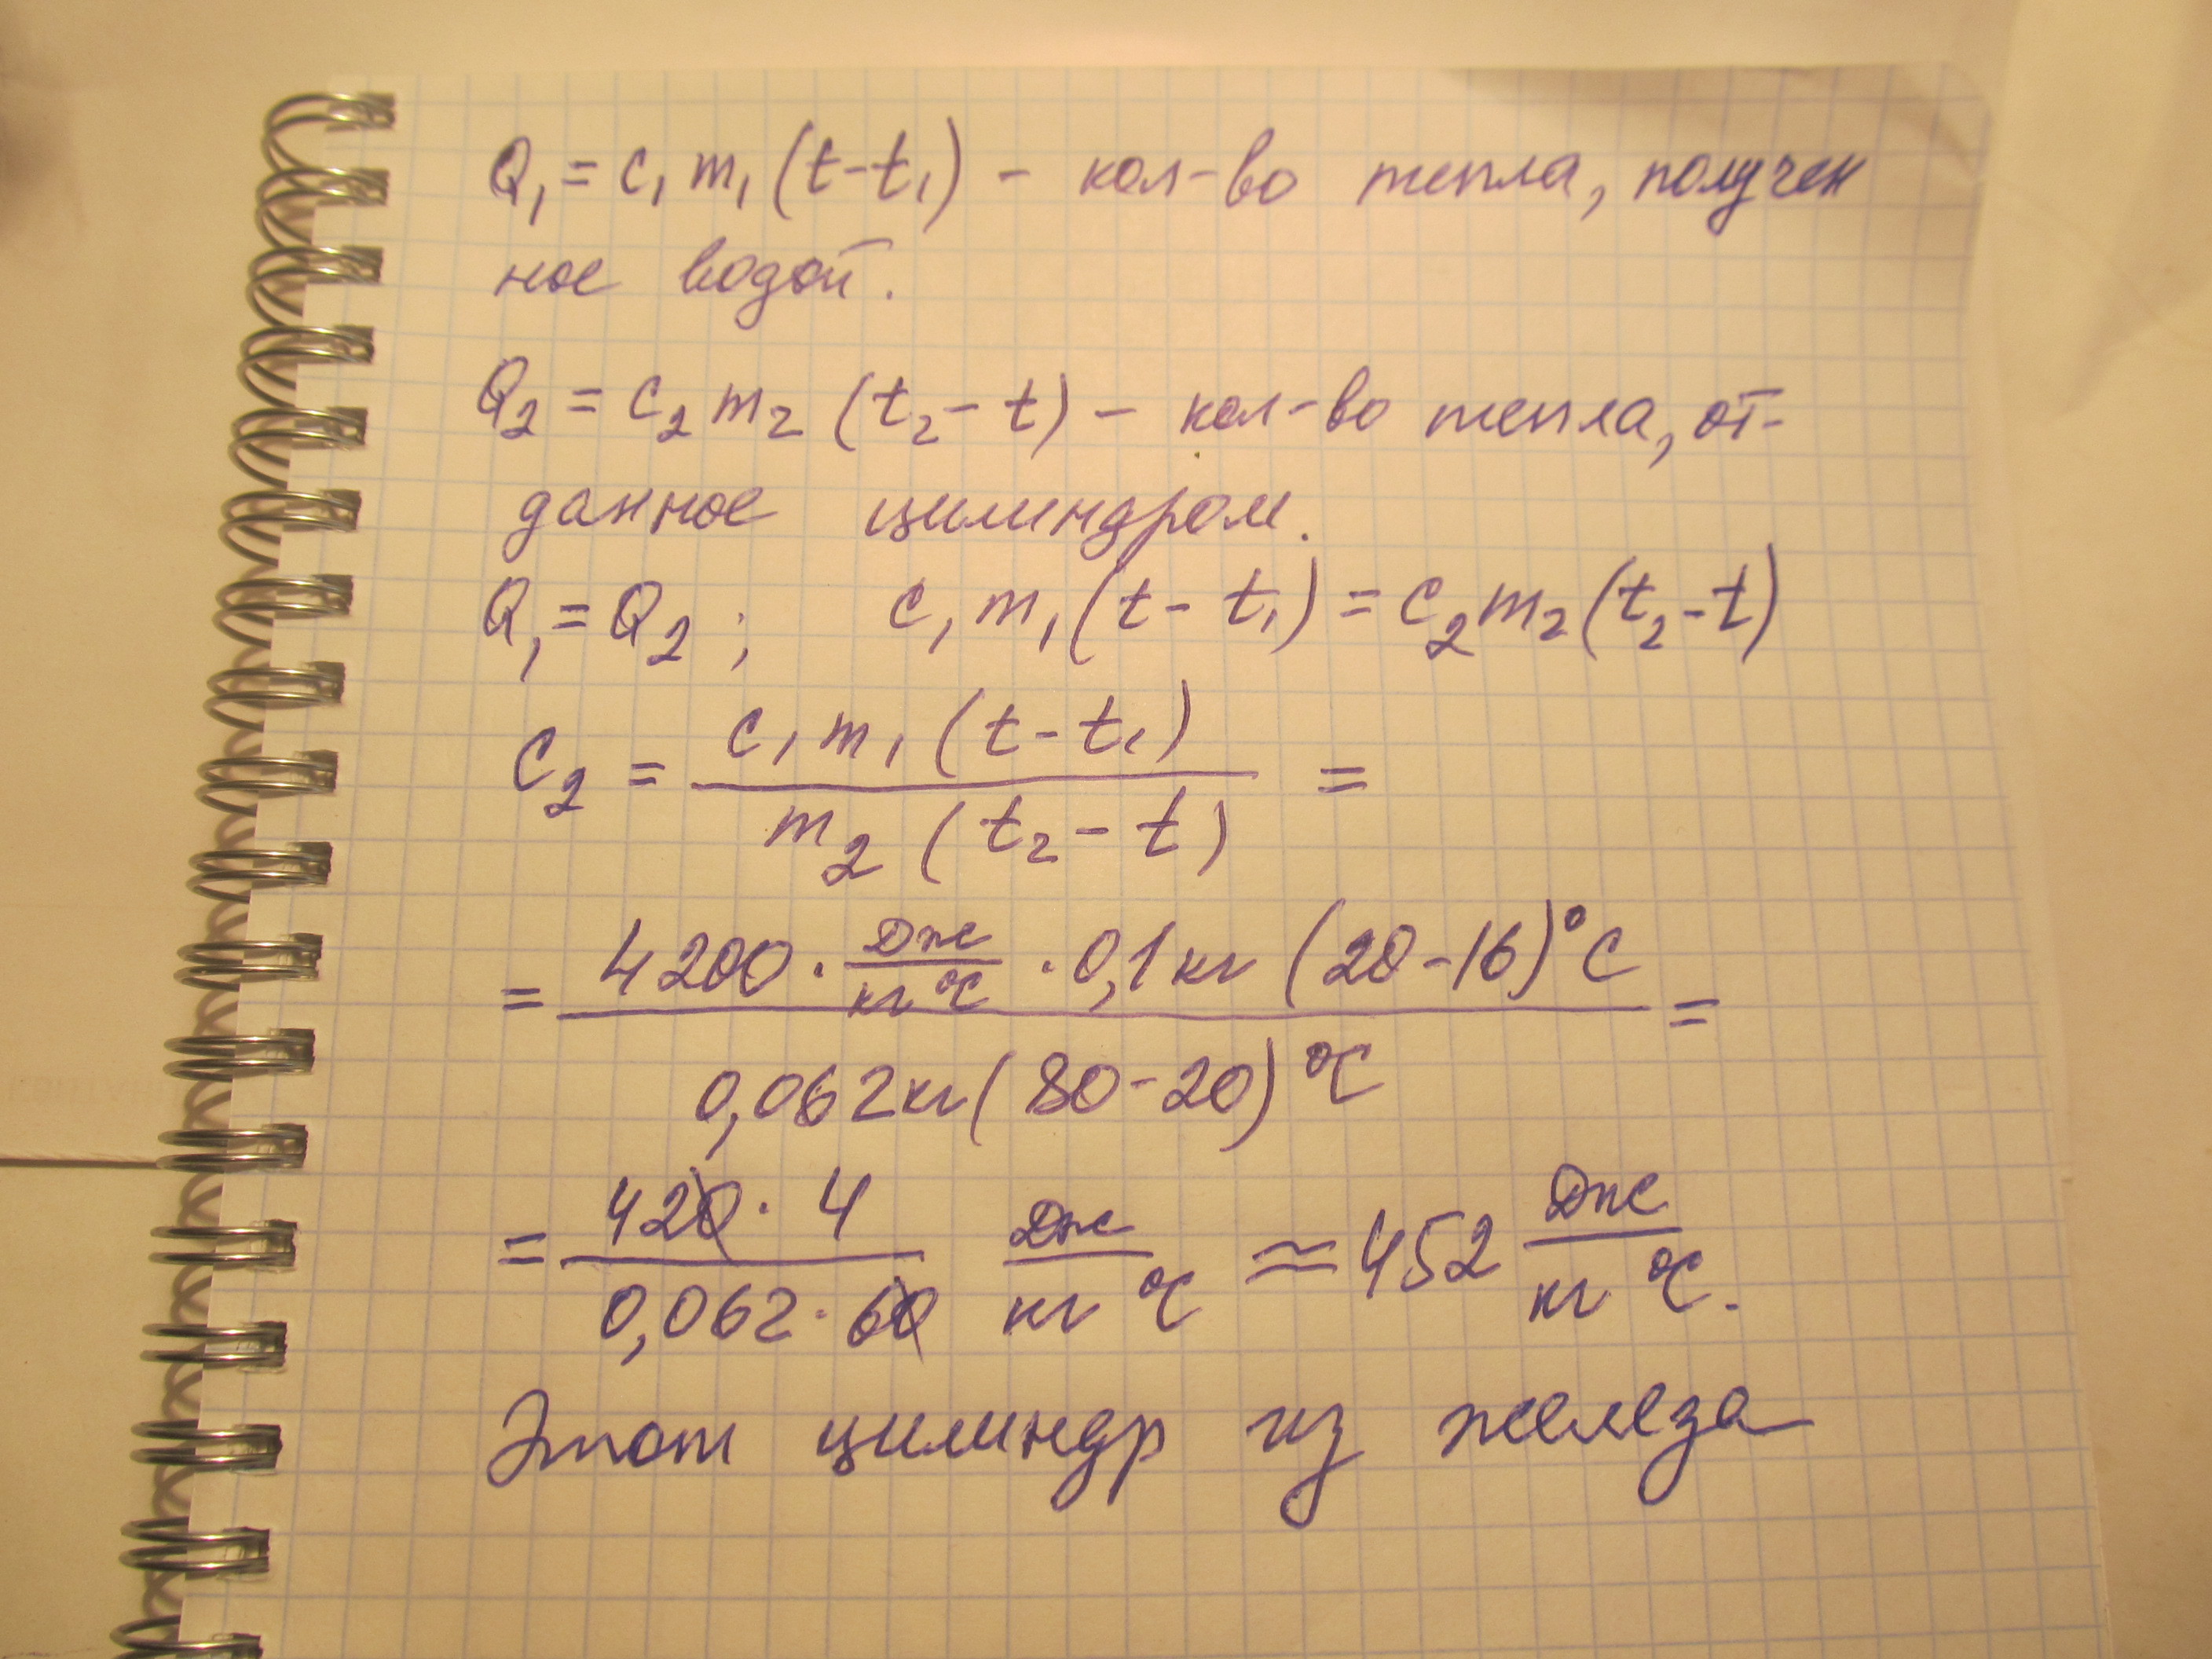 Q₁ = c₁ m₁ (t - t₁) - кол-во тепла, получен
ное водой.
Q₂ = c₂ m₂ (t₂ - t) - кол-во тепла, от-
данное цилиндром.
Q₁ = Q₂ ; c₁ m₁ (t - t₁) = c₂ m₂ (t₂ - t)
c₂ = \frac{c₁ m₁ (t - t₁)}{m₂ (t₂ - t)} =
= \frac{4200 · \frac{Дж}{кг °C} · 0,1 кг (20 - 16) °C}{0,062 кг (80 - 20) °C} =
= \frac{420 · 4}{0,062 · 60} \frac{Дж}{кг °C} ≈ 452 \frac{Дж}{кг °C}.
Этот цилиндр из железа